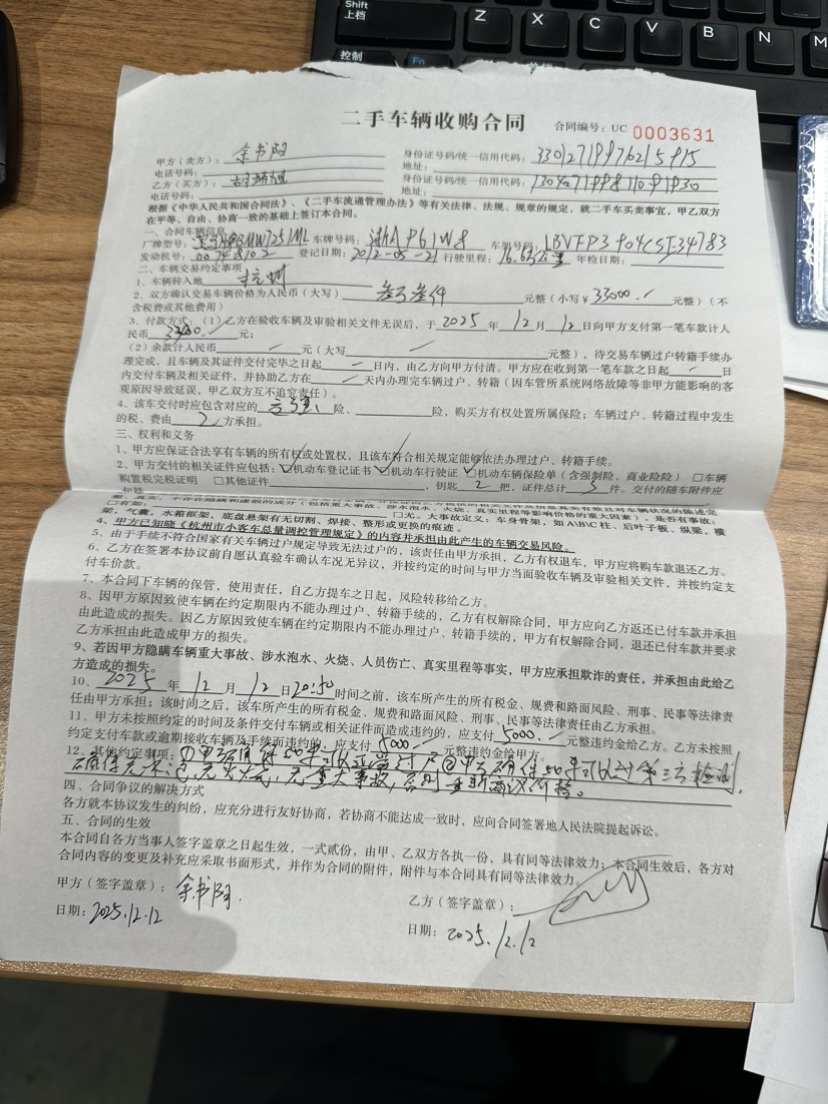 Shift
上档
控制
Fn
Z
X
C
V
B
N
M
二手车辆收购合同
合同编号：UC 0003631
甲方（卖方）：余书阳
身份证号码/统一信用代码：33012719976215915
电话号码：
地址：
乙方（买方）：
身份证号码/统一信用代码：130427199871091930
电话号码：
地址：
根据《中华人民共和国合同法》、《二手车流通管理办法》等有关法律、法规、规章的规定，就二手车买卖事宜，甲乙双方
在平等、自由、协商一致的基础上签订本合同。
一、合同车辆信息
厂牌型号：BMW7251ML 车牌号码：浙AP61W8 车架号码：LBVFP3904CSE34783
发动机号：0074B102 登记日期：2012-05-21 行驶里程：16.6万公里 年检日期：
二、车辆交易约定事项
1、车辆转入地 杭州
2、双方确认交易车辆价格为人民币（大写） 叁万叁仟 元整（小写￥33000.- 元整）（不
含税费或其他费用）
3、付款方式：（1）乙方在验收车辆及审验相关文件无误后，于 2025 年 12 月 12 日向甲方支付第一笔车款计人
民币 元；
（2）余款计人民币 元（大写 元整），待交易车辆过户转籍手续办
理完成，且车辆及其证件交付完毕之日起 日内，由乙方向甲方付清。甲方应在收到第一笔车款之日起 日
内交付车辆及相关证件，并协助乙方在 天内办理完车辆过户、转籍（因车管所系统网络故障等非甲方能影响的客
观原因导致延误，甲乙双方互不追究责任）。
4、该车交付时应包含对应的 险、 险，购买方有权处置所属保险；车辆过户、转籍过程中发生
的税、费由 乙 方承担。
三、权利和义务
1、甲方应保证合法享有车辆的所有权或处置权，且该车符合相关规定能够依法办理过户、转籍手续。
2、甲方交付的相关证件应包括：☑机动车登记证书 ☑机动车行驶证 ☑机动车辆保险单（含强制险、商业险险） □车辆
购置税完税证明 □其他证件 ，钥匙 2 把，证件总计 3 件。交付的随车附件应
□无。大事故定义：车身骨架，如A\B\C柱、后叶子板、纵梁、横
梁，气囊，水箱框架，底盘悬架有无切割、焊接、整形或更换的痕迹。
4、甲方已知晓《杭州市小客车总量调控管理规定》的内容并承担由此产生的车辆交易风险。
5、由于手续不符合国家有关车辆过户规定导致无法过户的，该责任由甲方承担，乙方有权退车，甲方应将购车款退还乙方。
6、乙方在签署本协议前自愿认真验车确认车况无异议，并按约定的时间与甲方当面验收车辆及审验相关文件，并按约定支
付车价款。
7、本合同下车辆的保管，使用责任，自乙方提车之日起，风险转移给乙方。
8、因甲方原因致使车辆在约定期限内不能办理过户、转籍手续的，乙方有权解除合同，甲方应向乙方返还已付车款并承担
由此造成的损失。因乙方原因致使车辆在约定期限内不能办理过户、转籍手续的，甲方有权解除合同，退还已付车款并要求
乙方承担由此造成甲方的损失。
9、若因甲方隐瞒车辆重大事故、涉水泡水、火烧、人员伤亡、真实里程等事实，甲方应承担欺诈的责任，并承担由此给乙
方造成的损失。
10、 2025 年 12 月 12 日 20:50 时间之前，该车所产生的所有税金、规费和路面风险、刑事、民事等法律责
任由甲方承担；该时间之后，该车所产生的所有税金、规费和路面风险、刑事、民事等法律责任由乙方承担。
11、甲方未按照约定的时间及条件交付车辆或相关证件而造成违约的，应支付 5000.- 元整违约金给乙方。乙方未按照
约定支付车款或逾期接收车辆及手续而违约的，应支付 5000.- 元整违约金给甲方。
12、其他约定事项：①甲方确保此车可以正常过户②甲方确保此车可以过第三方检测，
确保无水泡，无火烧，无重大事故，否则重新商议价格。
四、合同争议的解决方式
各方就本协议发生的纠纷，应充分进行友好协商，若协商不能达成一致时，应向合同签署地人民法院提起诉讼。
五、合同的生效
本合同自各方当事人签字盖章之日起生效，一式贰份，由甲、乙双方各执一份，具有同等法律效力；本合同生效后，各方对
合同内容的变更及补充应采取书面形式，并作为合同的附件，附件与本合同具有同等法律效力。
甲方（签字盖章）：余书阳
乙方（签字盖章）：
日期：2025.12.12
日期：2025.12.12